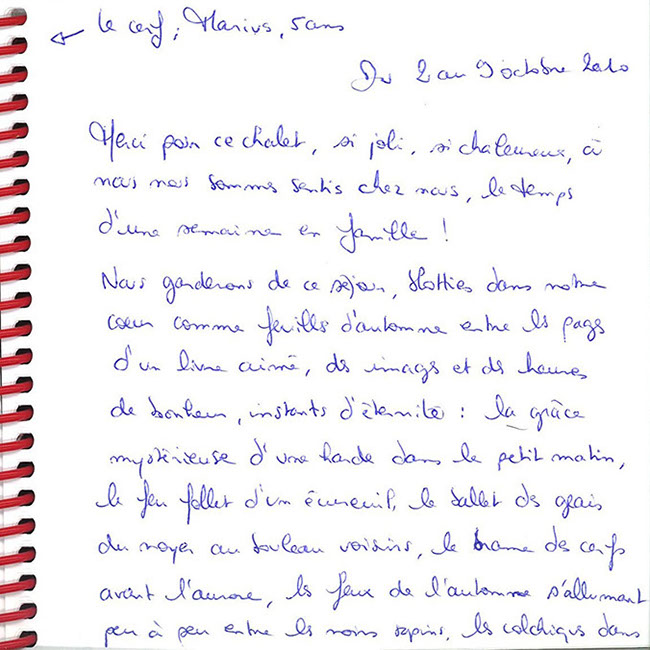 le cerf, Marius, 5 ans
Du 2 au 9 octobre 2010
Merci pour ce chalet, si joli, si chaleureux, où
nous nous sommes sentis chez nous, le temps
d'une semaine en famille !
Nous garderons de ce séjour, blotties dans notre
cœur comme feuilles d'automne entre les pages
d'un livre aimé, des images et des heures
de bonheur, instants d'éternité : la grâce
mystérieuse d'une harde dans le petit matin,
le feu follet d'un écureuil, le ballet des geais
du noyer au bouleau voisins, le brame des cerfs
avant l'aurore, les feux de l'automne s'allumant
peu à peu entre les noirs sapins, les colchiques dans